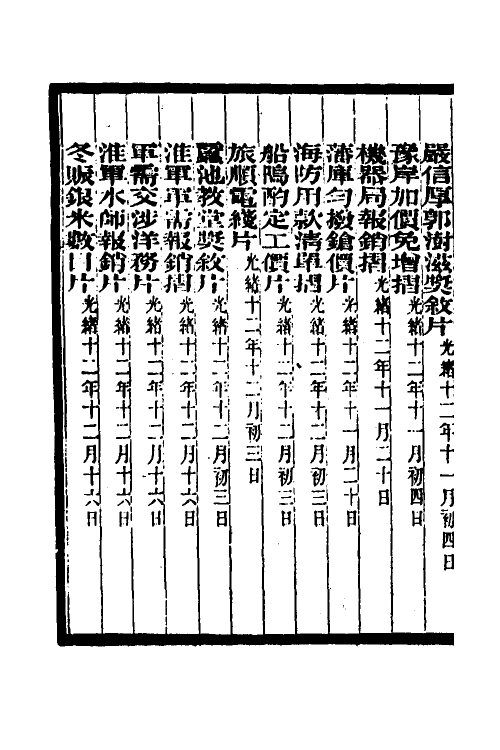 嚴信厚郭澍滋獎敘片光緒十二年十一月初四日
豫岸加價免增摺光緒十二年十一月初四日
機器局報銷摺光緒十二年十一月二十日
藩庫勻撥鎗價片光緒十二年十一月二十日
海防用款清單摺光緒十二年十二月初三日
船隖酌定工價片光緒十二年十二月初三日
旅順電綫片光緒十二年十二月初三日
蠶池教堂獎敘片光緒十二年十二月初三日
淮軍軍需報銷摺光緒十二年十二月十六日
軍需交涉洋務片光緒十二年十二月十六日
淮軍水師報銷片光緒十二年十二月十六日
冬賑銀米數目片光緒十二年十二月十六日